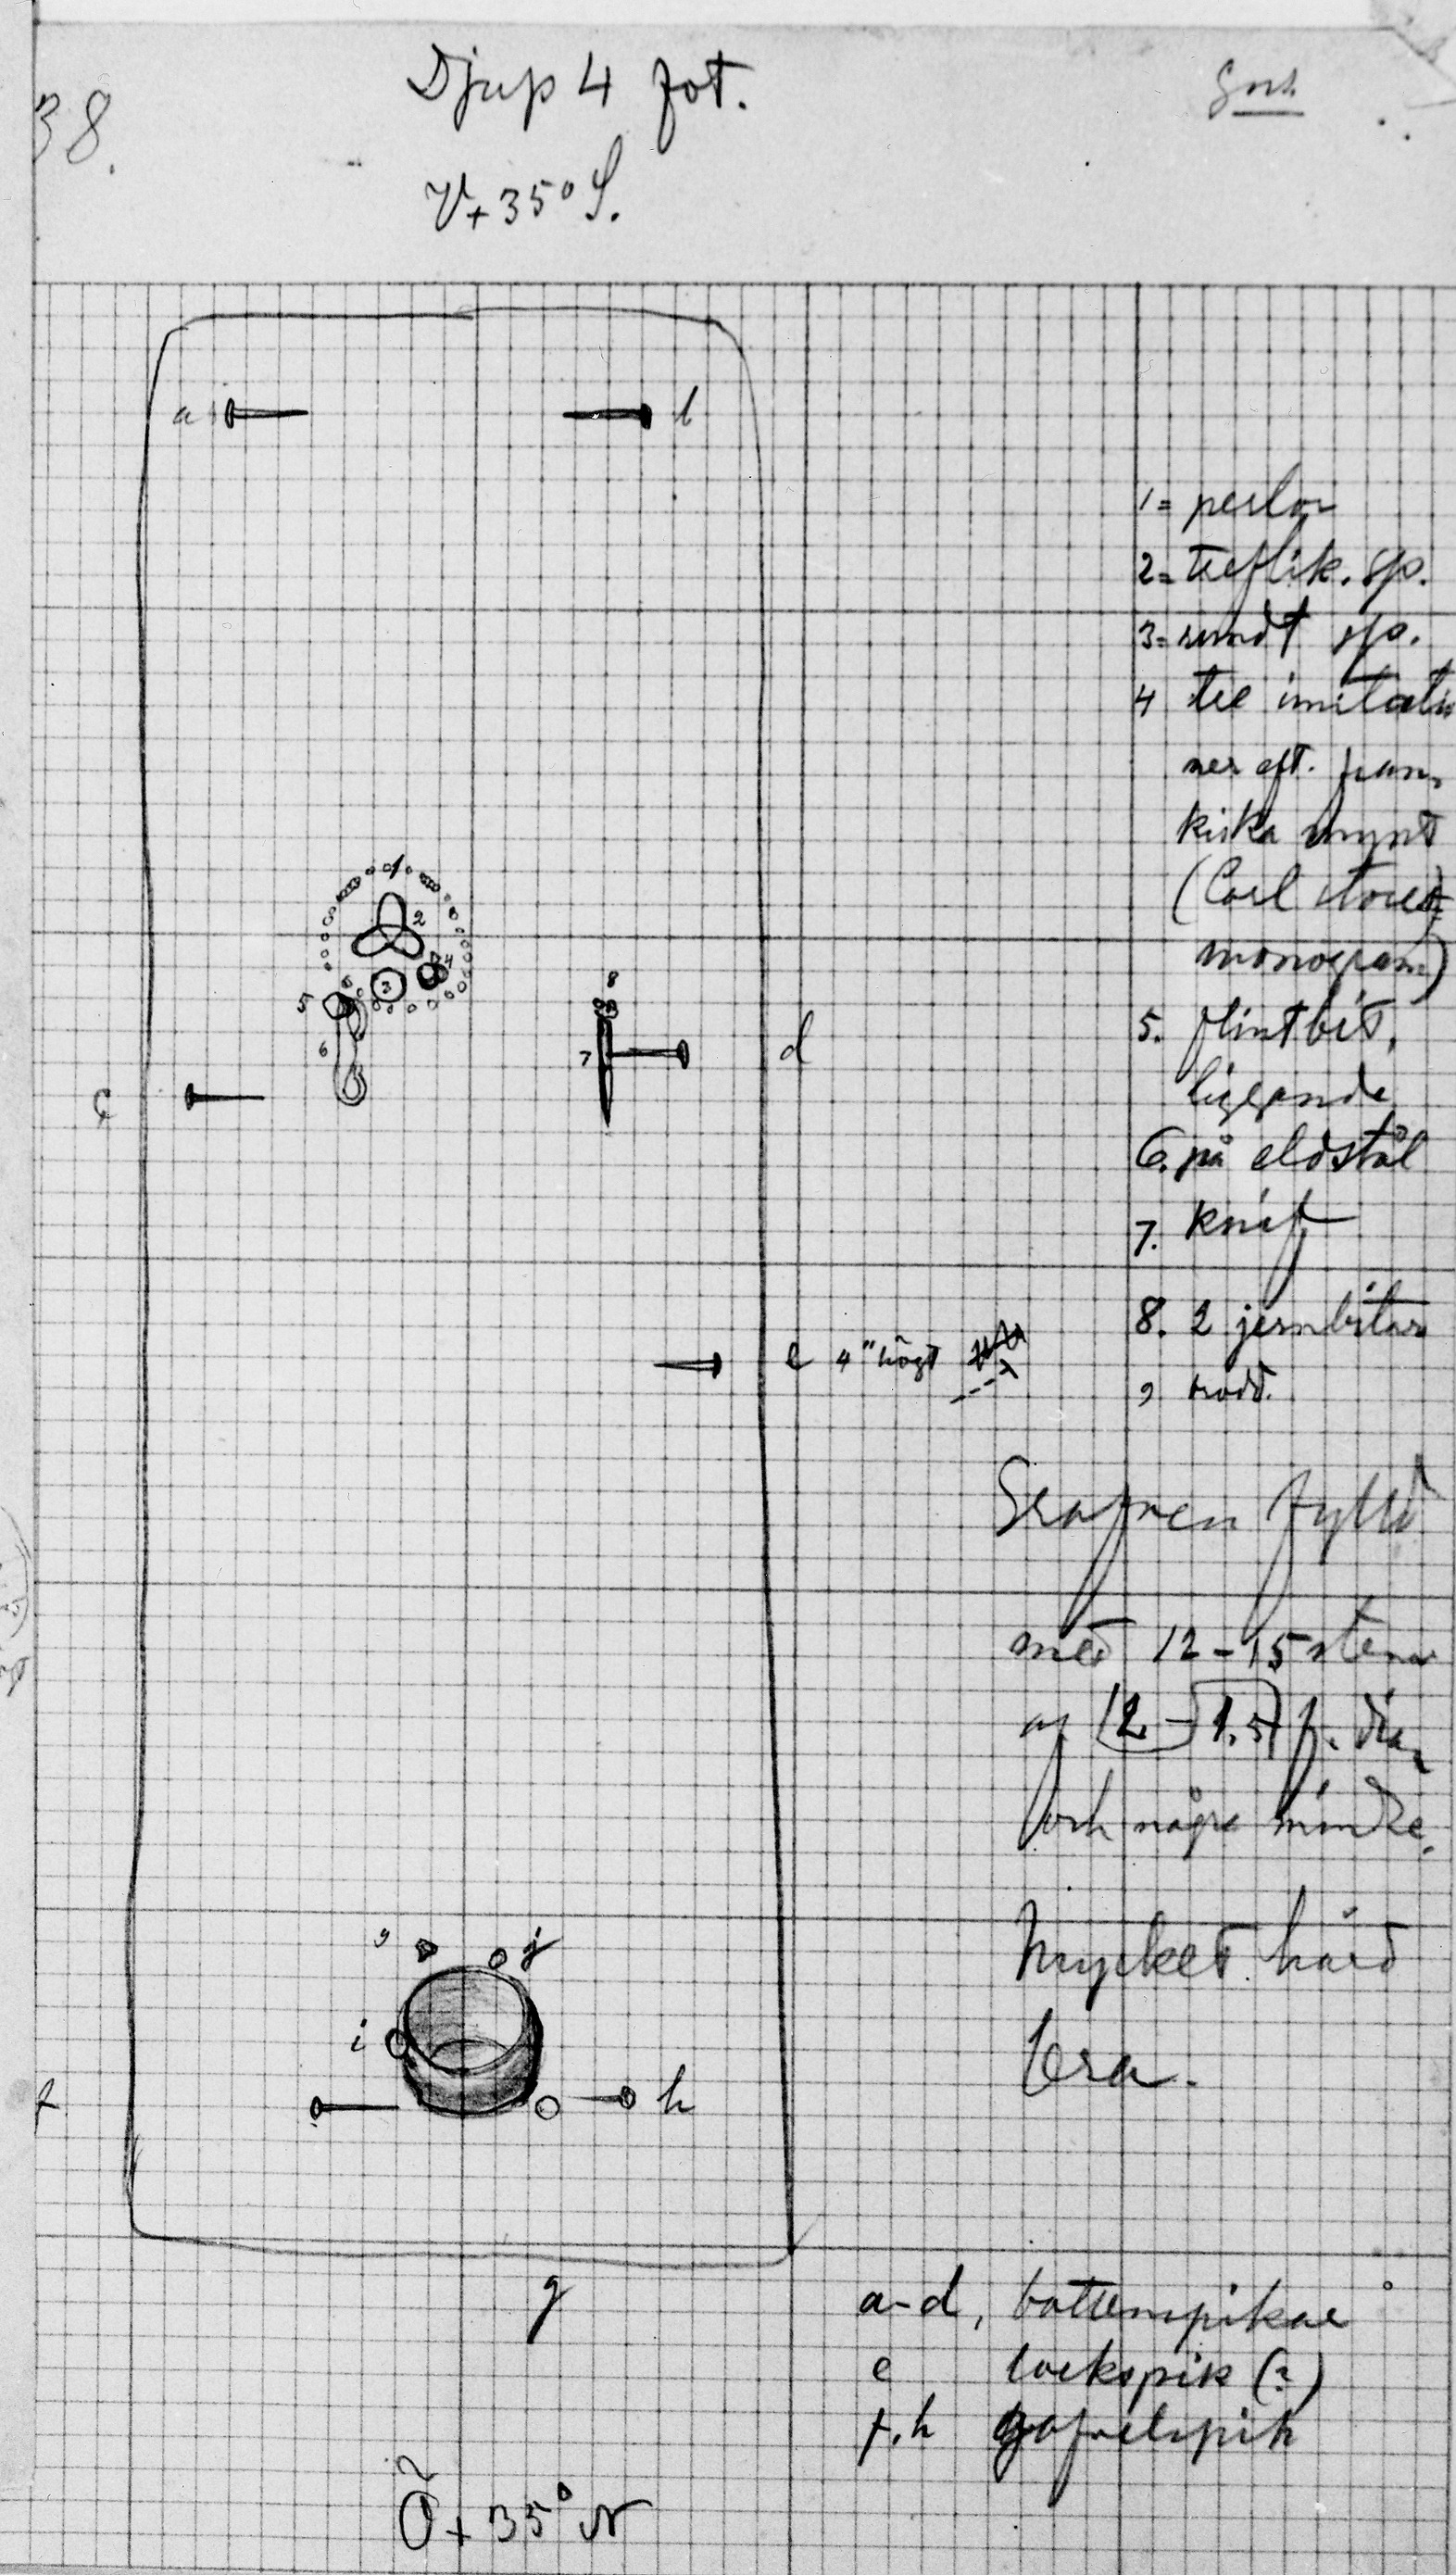 38.
Djup 4 fot.
V+35° S.
a
b
1= perlor
2= treflik. sp.
3= rundt sp.
4 tre imitatio
ner eft. fran,
kiska mynt
(Carl stores
monogram)
5. flintbit,
liggande
6. på eldstål
7. knif
8. 2 jernbitar
9 rodd.
1
2
3
4
5
6
7
8
c
d
e 4" högt
Grafven fylld
med 12-15 stenar
af 12-1,5 f. dia,
och några mindre.
Mycket hård
lera.
9
j
i
f
h
g
a-d, bottenspikar
e lockspik (?)
f.h gafvelspik
Ö+35° N